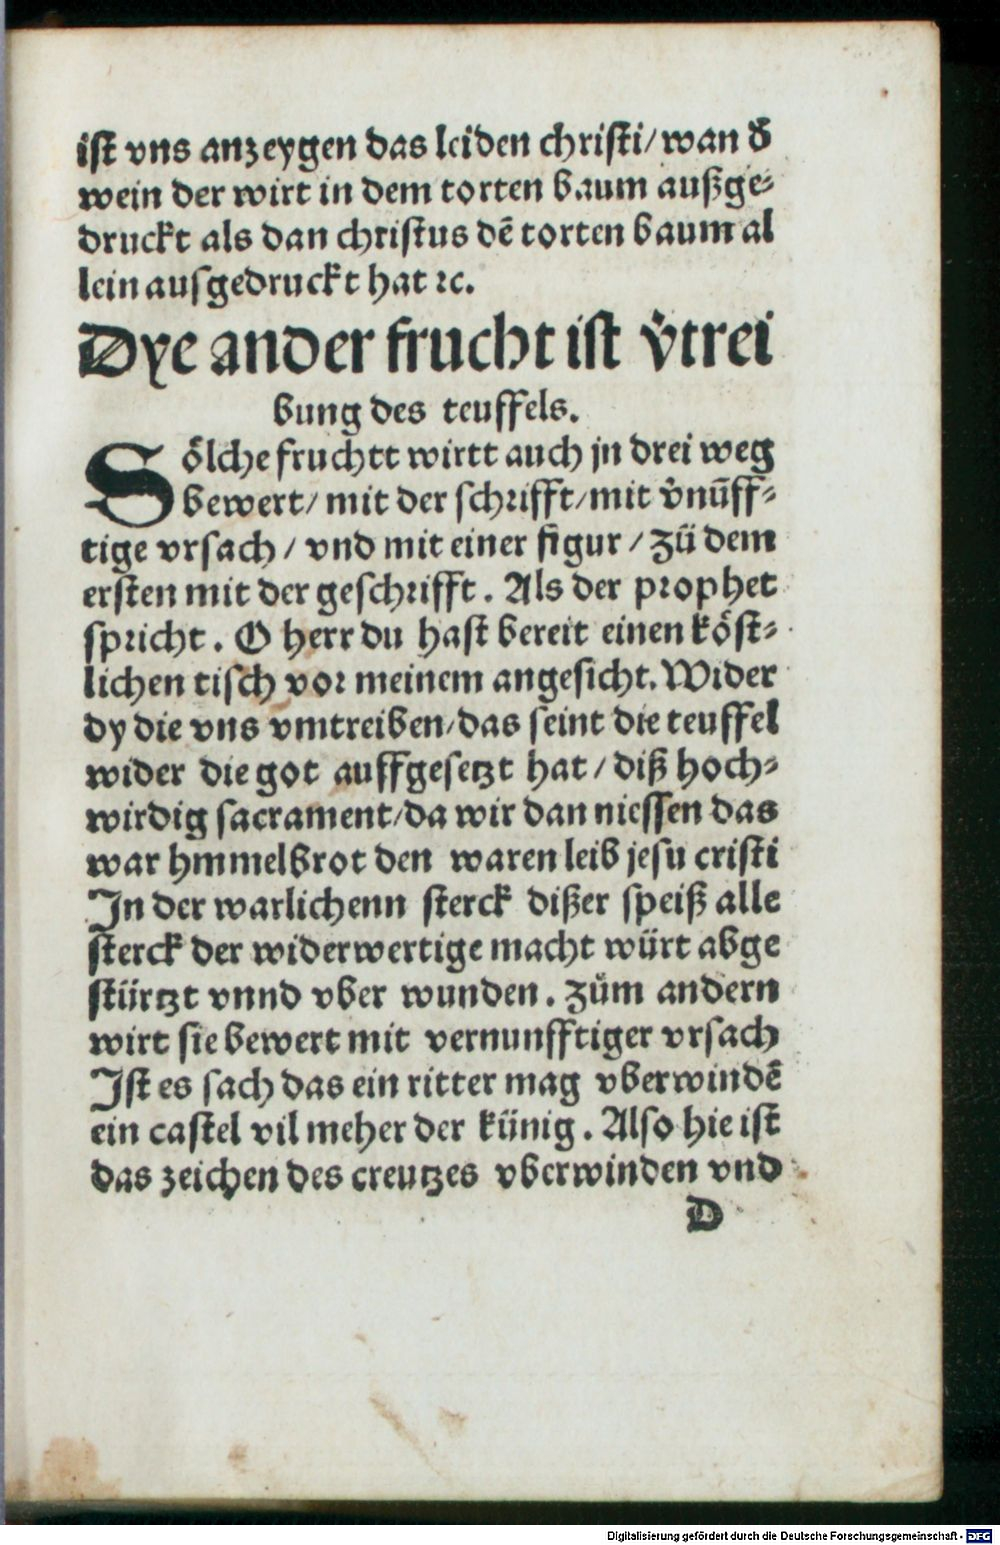 ist vns anzeygen das leiden christi/ wan d̕
wein der wirt in dem torten baum außge⸗
druckt als dan christus dē torten baum al
lein ausgedruckt hat ꝛc.
Dye ander frucht ist v̕trei
bung des teuffels.
Sölche fruchtt wirtt auch jn drei weg
bewert/ mit der schrifft/ mit v̕nūff⸗
tige vrsach / vnd mit einer figur / zů dem
ersten mit der geschrifft. Als der prophet
spricht. O herr du hast bereit einen köst⸗
lichen tisch vor meinem angesicht. Wider
dy die vns vmtreiben/ das seint die teuffel
wider die got auffgesetzt hat / diß hoch⸗
wirdig sacrament/ da wir dan niessen das
war hmmelbrot den waren leib jesu cristi
In der warlichenn sterck dißer speiß alle
sterck der widerwertige macht würt abge
stürtzt vnnd vber wunden. zům andern
wirt sie bewert mit vernunfftiger vrsach
Ist es sach das ein ritter mag vberwindē
ein castel vil meher der künig. Also hie ist
das zeichen des creutzes vberwinden vnd
D
Digitalisierung gefördert durch die Deutsche Forschungsgemeinschaft - DFG